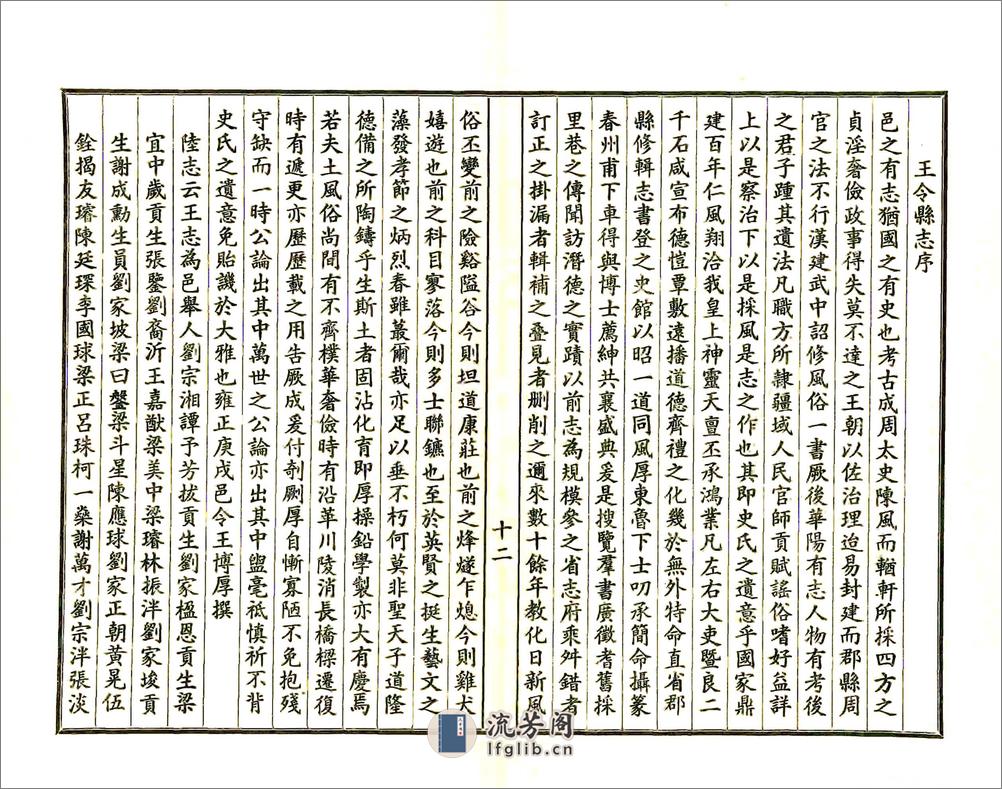 王令縣志序
邑之有志猶國之有史也考古成周太史陳風而輶軒所採四方之
貞淫奢儉政事得失莫不達之王朝以佐治理迨易封建而郡縣周
官之法不行漢建武中詔修風俗一書厥後華陽有志人物有考後
之君子踵其遺法凡職方所隸疆域人民官師貢賦謠俗嗜好益詳
上以是察治下以是採風是志之作也其即史氏之遺意乎國家鼎
建百年仁風翔洽我皇上神靈天亶丕承鴻業凡左右大吏暨良二
千石咸宣布德愷覃敷遠播道德齊禮之化幾於無外特命直省郡
縣修輯志書登之史館以昭一道同風厚東魯下士叨承簡命攝篆
春州甫下車得與博士薦紳共襄盛典爰是搜覽羣書廣徵耆舊採
里巷之傳聞訪潛德之實蹟以前志為規模參之省志府乘舛錯者
訂正之掛漏者輯補之叠見者刪削之邇來數十餘年教化日新風
十二
俗丕變前之險谿隘谷今則坦道康莊也前之烽燧乍熄今則雞犬
嬉遊也前之科目寥落今則多士聯鑣也至於英賢之挺生藝文之
藻發孝節之炳烈春雖蕞爾哉亦足以垂不朽何莫非聖天子道隆
德備之所陶鑄乎生斯土者固沾化育即厚操鉛學製亦大有慶焉
若夫土風俗尚間有不齊樸華奢儉時有沿革川陵消長橋樑遷復
時有遞更亦歷歷載之用告厥成爰付剞劂厚自慚寡陋不免抱殘
守缺而一時公論出其中萬世之公論亦出其中盥毫祗慎祈不背
史氏之遺意免貽譏於大雅也雍正庚戌邑令王博厚撰
陸志云王志為邑舉人劉宗湘譚予芳拔貢生劉家楹恩貢生梁
宜中歲貢生張鑒劉裔沂王嘉猷梁美中梁璿林振泮劉家埈貢
生謝成勳生員劉家坡梁曰鑿梁斗星陳應球劉家正朝黃晃伍
銓揭友璿陳廷琛李國球梁正呂珠柯一燊謝萬才劉宗泮張淡
流芳阁
lfglib.cn